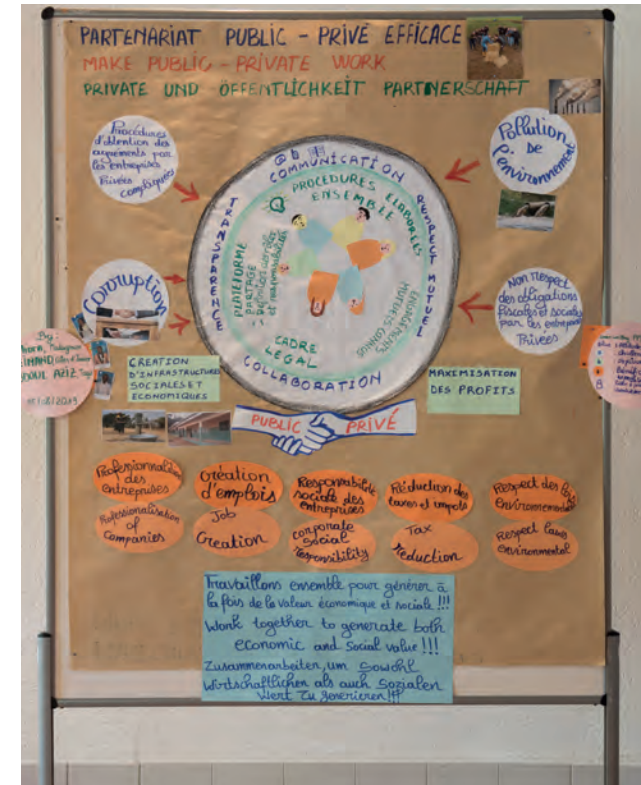 PARTENARIAT PUBLIC - PRIVÉ EFFICACE
MAKE PUBLIC - PRIVATE WORK
PRIVATE UND ÖFFENTLICHKEIT PARTNERSCHAFT
Procédures
d'obtention des
agréments par
les entreprises
Privées
compliquées
Pollution
de
l'environnement
Corruption
Non Respect
des obligations
fiscales et sociales
par les entreprises
Privées
COMMUNICATION
TRANSPARENCE
RESPECT MUTUEL
COLLABORATION
PROCEDURES ELABOREES
ENSEMBLE
PLATEFORME
PARTAGE
et responsabilités
ENGAGEMENTS
MUTUELS CONNUS
CADRE
LEGAL
By
AZIZ
CREATION
D'INFRASTRUCTURES
SOCIALES ET
ECONOMIQUES
MAXIMISATION
DES PROFITS
PUBLIC PRIVÉ
des
entreprises
création
d'emplois
Responsabilité
sociale des
entreprises
Réduction des
taxes et impots
Respect des lois
environnementales
Professionalisation
of
companies
Job
Creation
corporate
Social
responsibility
Tax
Reduction
Respect laws
environmental
Travaillons ensemble pour générer à
la fois de la valeur économique et sociale !!!
Work together to generate both
economic and Social value !!!
Zusammenarbeiten, um Sowohl
Wirtschaftlichen als auch Sozialen
Wert Zu generieren !!!